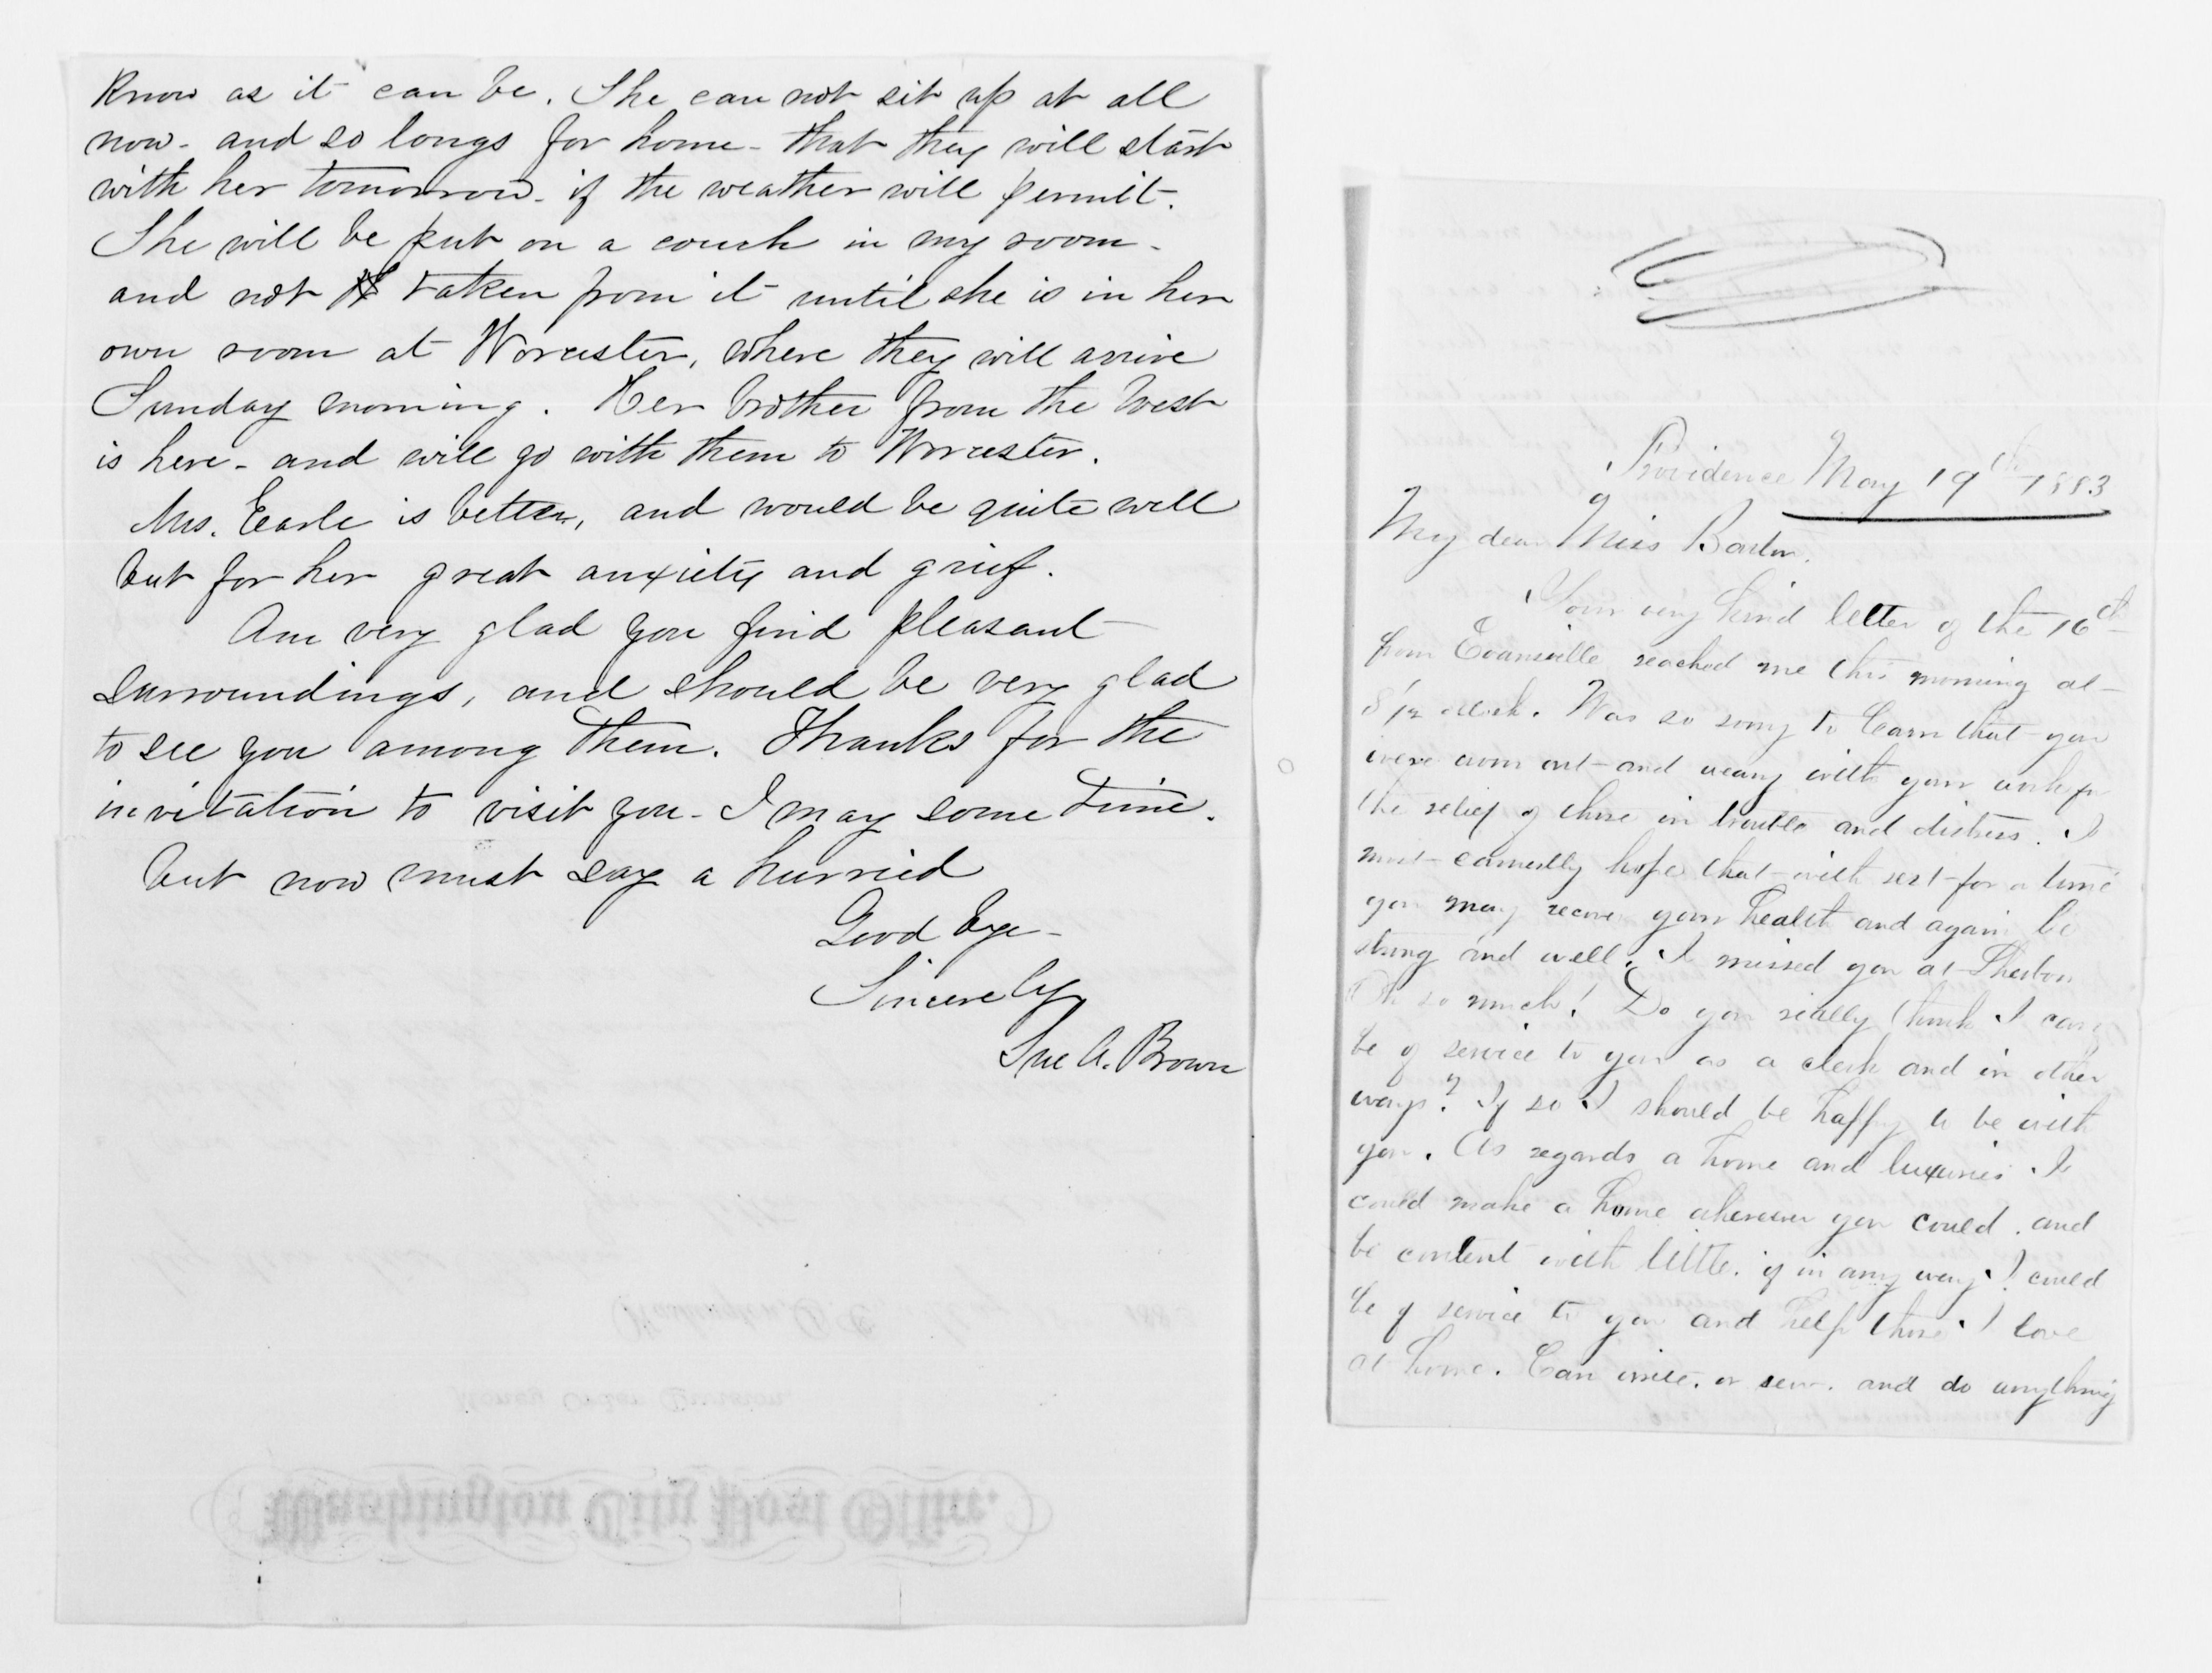 Know as it can be. She can not sit up at all
now - and so longs for home - that they will start
with her tomorrow - if the weather will permit.
She will be put on a couch in my room -
and not taken from it until she is in her
own room at Worcester, where they will arrive
Sunday morning. Her brother from the West
is here - and will go with them to Worcester.
Mrs. Earle is better, and would be quite well
but for her great anxiety and grief.
Am very glad you find pleasant
surroundings, and should be very glad
to see you among them. Thanks for the
invitation to visit you - I may some time.
but now must say a hurried
Good bye -
Sincerely
Sue A. Brown
Washington, D.C. 188
Money Order Division
Washington City Post Office.
Providence May 19th 1883
My dear Miss Barton.
Your very kind letter of the 16th
from Evansville reached me this morning at
8 1/2 oclock. Was so sorry to learn that you
were worn out and weary with your work for
the relief of those in trouble and distress. I
most earnestly hope that with rest for a time
you may your health and again be
strong and well. I missed you at Sherborn
Oh so much! Do you really think I can
be of service to you as a clerk and in other
ways? If so I should be happy to be with
you. As regards a home and luxuries I
could make a home wherever you could. and
be content with little. if in any way I could
be of service to you and help those I love
at home. Can write. or sew. and do anything